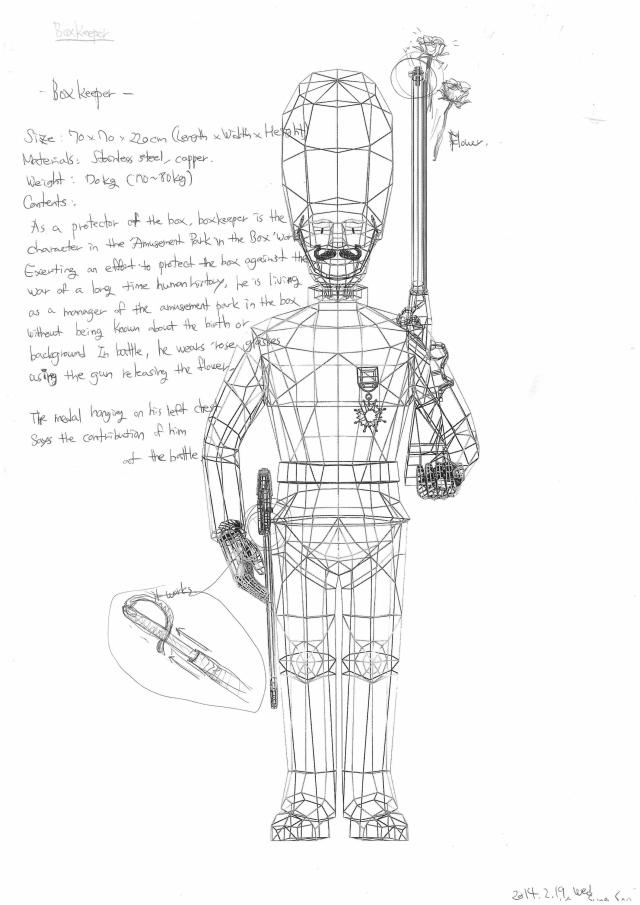 Boxkeeper
- Boxkeeper -
Size : 70 x 70 x 220cm (Length x Width x Height)
Materials : Stainless steel, copper.
Weight : 70kg (70~80kg)
Contents :
As a protector of the box, boxkeeper is the
character in the 'Amusement Park in the Box' world
Exerting an effort to protect the box against the
war of a long time human history, he is living
as a manager of the amusement park in the box
without being known about the birth or
background In battle, he wears rose glasses
using the gun releasing the flower.
The medal hanging on his left chest
Says the contribution of him
at the battle.
Flower.
it works
2014. 2. 19. Wed